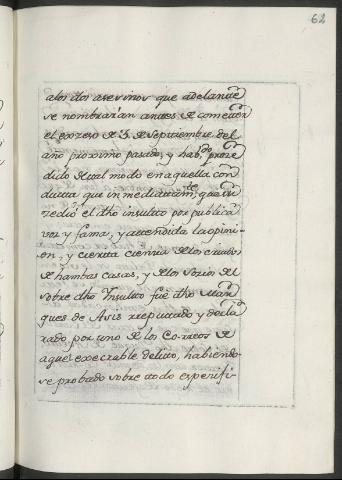 62
a los dhos asesinos que adelante
se nombrarán antes de cometer
el exceso de 3 de Septiembre del
año proximo pasado, y habdo proce
dido de tal modo en aquella con
ducta que inmediatamte que
cedió el dho insulto por publica
voz y fama, y attendida la opini-
on, y cierta ciencia de los criados
de hambas casas, y de los Socios del
sobre dho Insulto fue dho Mar
ques de Asis reputado y decla
rado por uno de los Co-rreos de
aquel execrable delito, habiendo-
se probado sobre todo especifi-